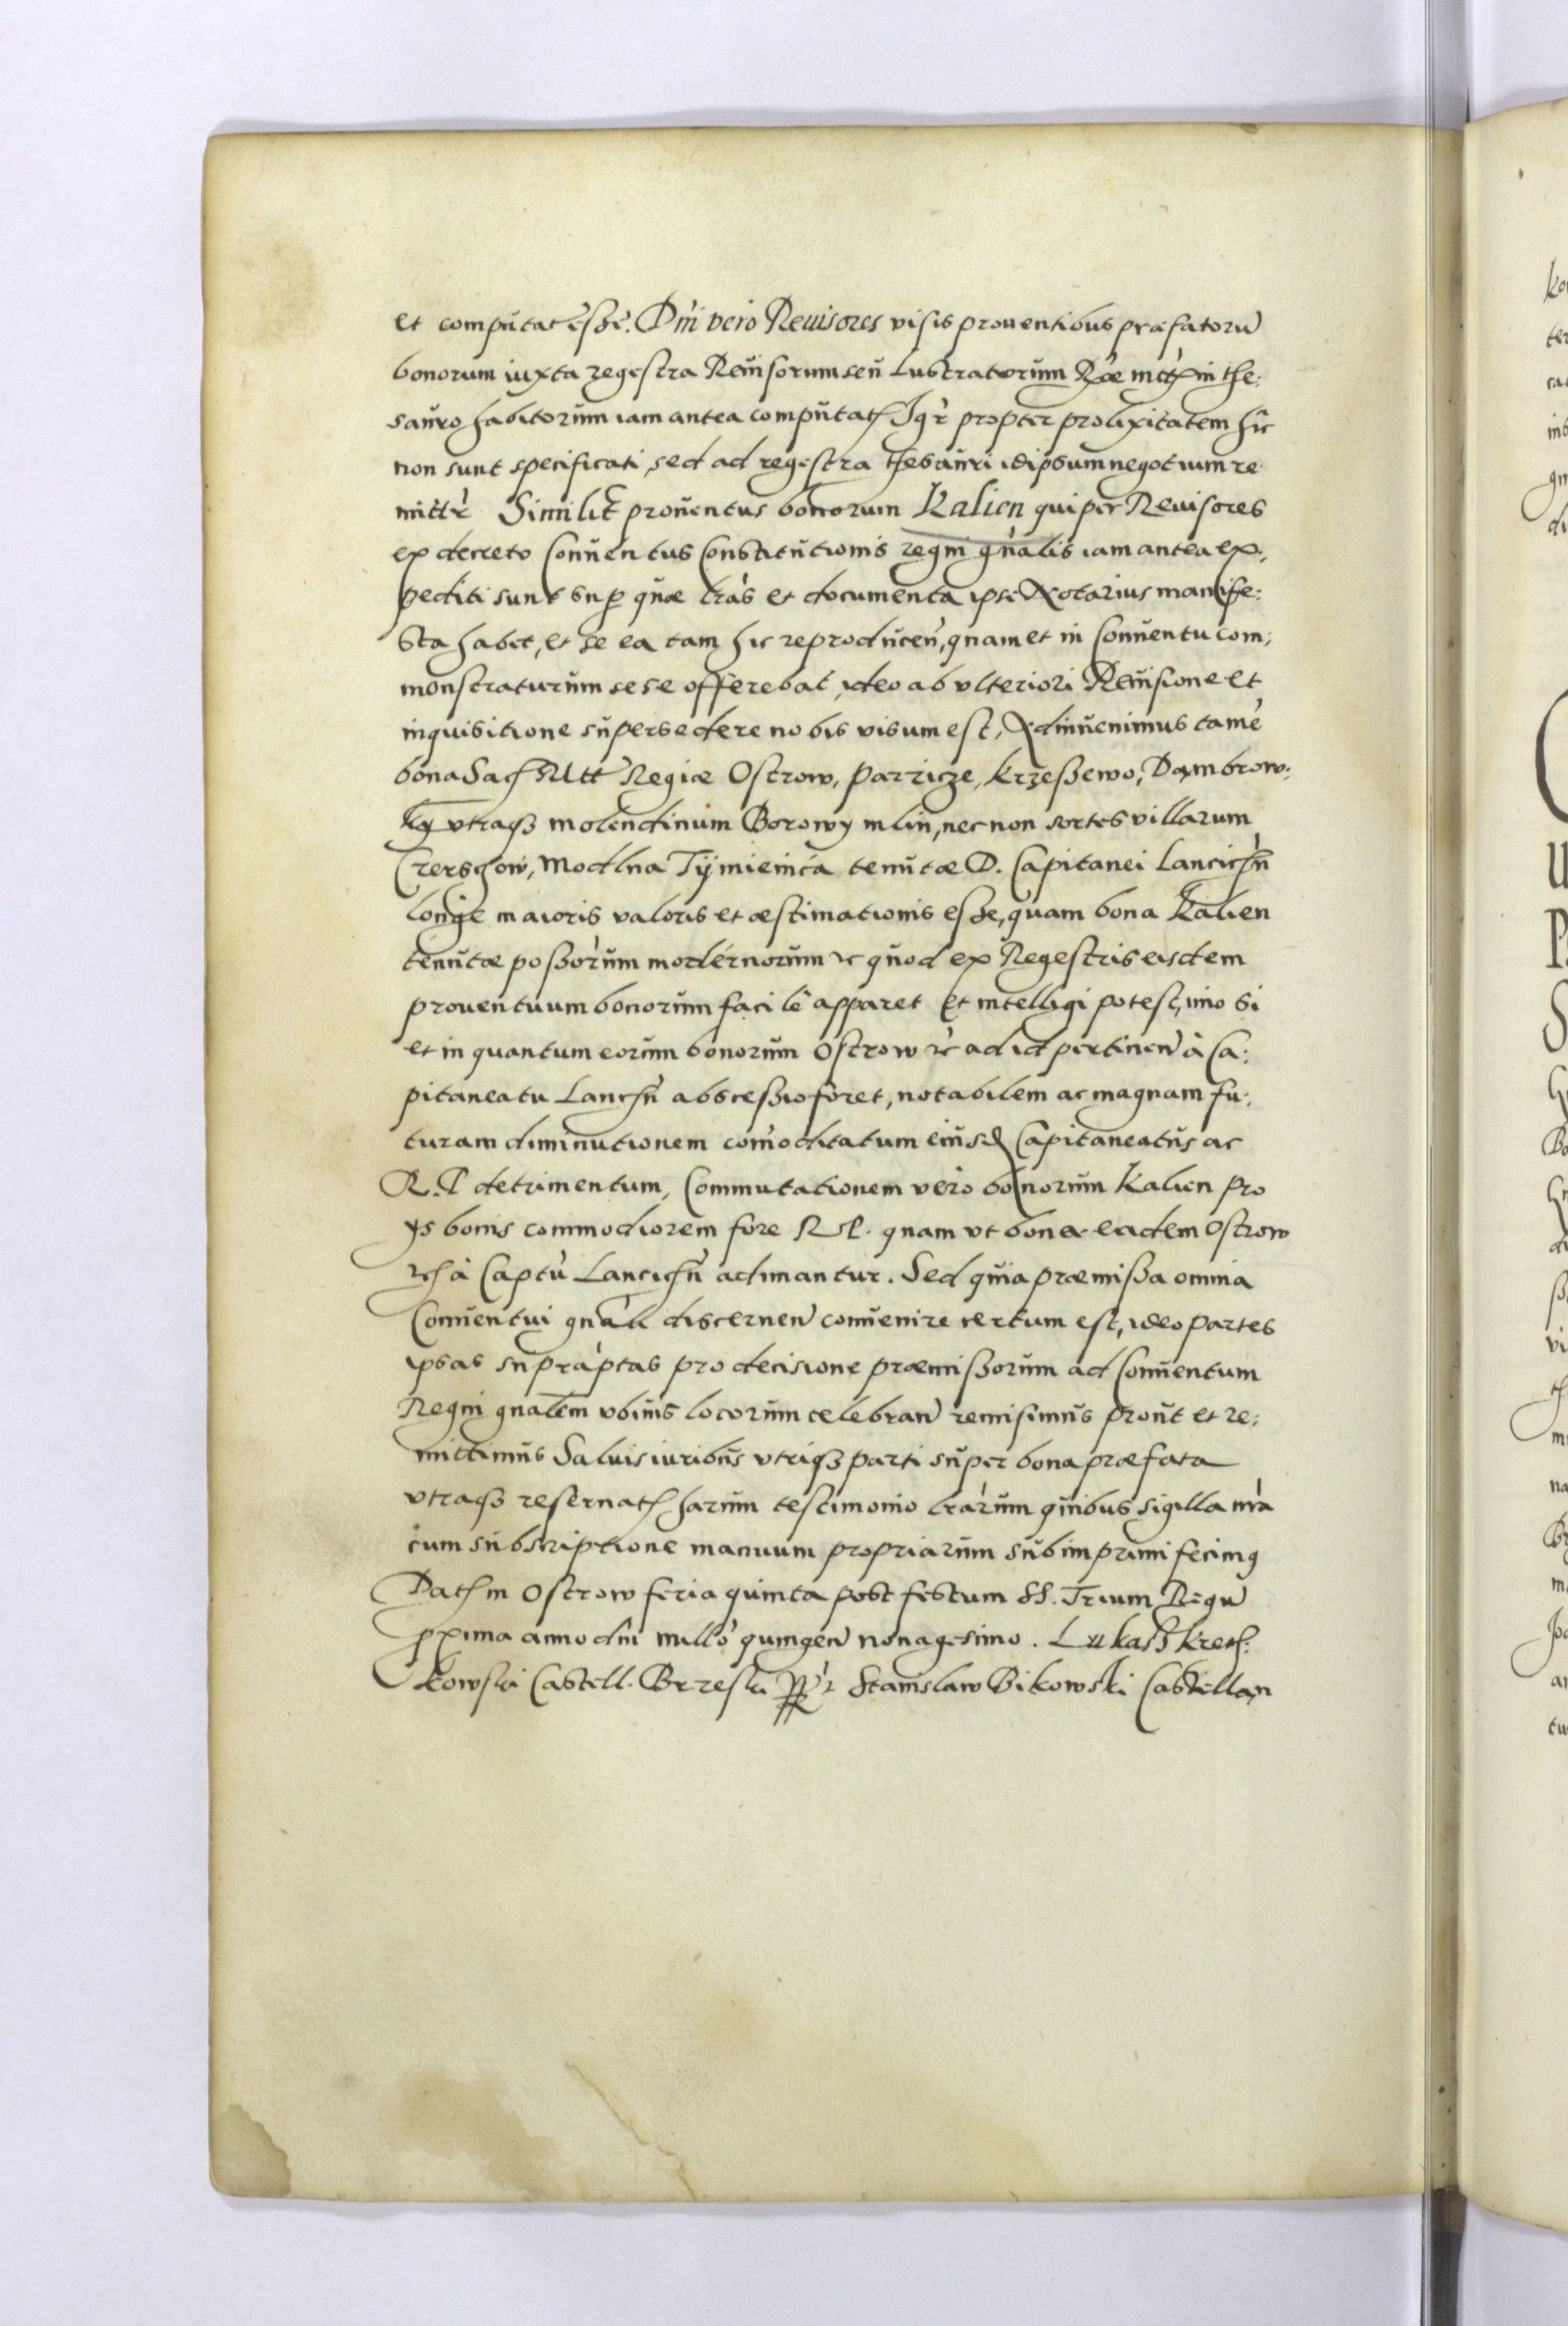 et computat esse. Dni vero Reuisores visis prouentibus præfatorū
bonorum iuxta regestra Reuisorum seu Lustratorum Ræ mtis in the:
sauro habitorum iam antea computat Igr propter prolixitatem hic
non sunt specificati, sed ad regestra thesauri idipsum negotium re
mittr Similit prouentus bonorum Kalien qui per Reuisores
ex decreto Conuentus Constitutionis regni gnalis iam antea ex:
pediti sunt sup quæ lras et documenta ipse Notarius manife:
sta habet, et se ea tam hic reproducen, quam et in Conuentu com:
monstraturum sese offerebat, ideo ab vlteriori Reuisione et
inquisitione supersedere nobis visum est, Adinuenimus tamē
bona Sac Mtt Regiæ Ostrow, Parzicze, Krzeszewo, Dąmbrow:
ką vtraqз molendinum Borowy mlin, nec non sortes villarum
Czerschow, Modlna Tÿmienica tenutæ D. Capitanei Lancicħn
longe maioris valoris et æstimationis esse, quam bona Kalien
tenutæ possorum modernorum &c quod ex Regestris eisdem
prouentuum bonorum facile apparet et intelligi potest, imo si
et in quantum eorum bonorum Ostrow &c ad id pertinen à Ca:
pitaneatu Lancħn abscessio foret, notabilem ac magnam fu:
turam diminutionem comoditatum eiusd Capitaneatus ac
R.P detrimentum, Commutationem vero bonorum Kalien pro
ys bonis commodiorem fore R P. quam vt bona eadem Ostrow
&c à Captu Lancicħn adimantur. Sed quia præmissa omnia
Conuentui gnali discernen conuenire certum est, ideo partes
ipsas supraptas pro decisione præmissorum ad Conuentum
Regni gnalem vbiuis locorum celebran remisimus prout et re:
mittimus Saluis iuribus vtriqз parti super bona præfata
vtraqз reseruat harum testimonio lrarum quibus sigilla nra
cum subscriptione manuum propriarum subimprimi fecimq
Dat in Ostrow feria quinta post festum SS. Trium Regū
pxima anno dni millo quingen nonagesimo. Lukasz Krets:
kowski Castell. Brzeski Stanislaw Bikowski Castellan